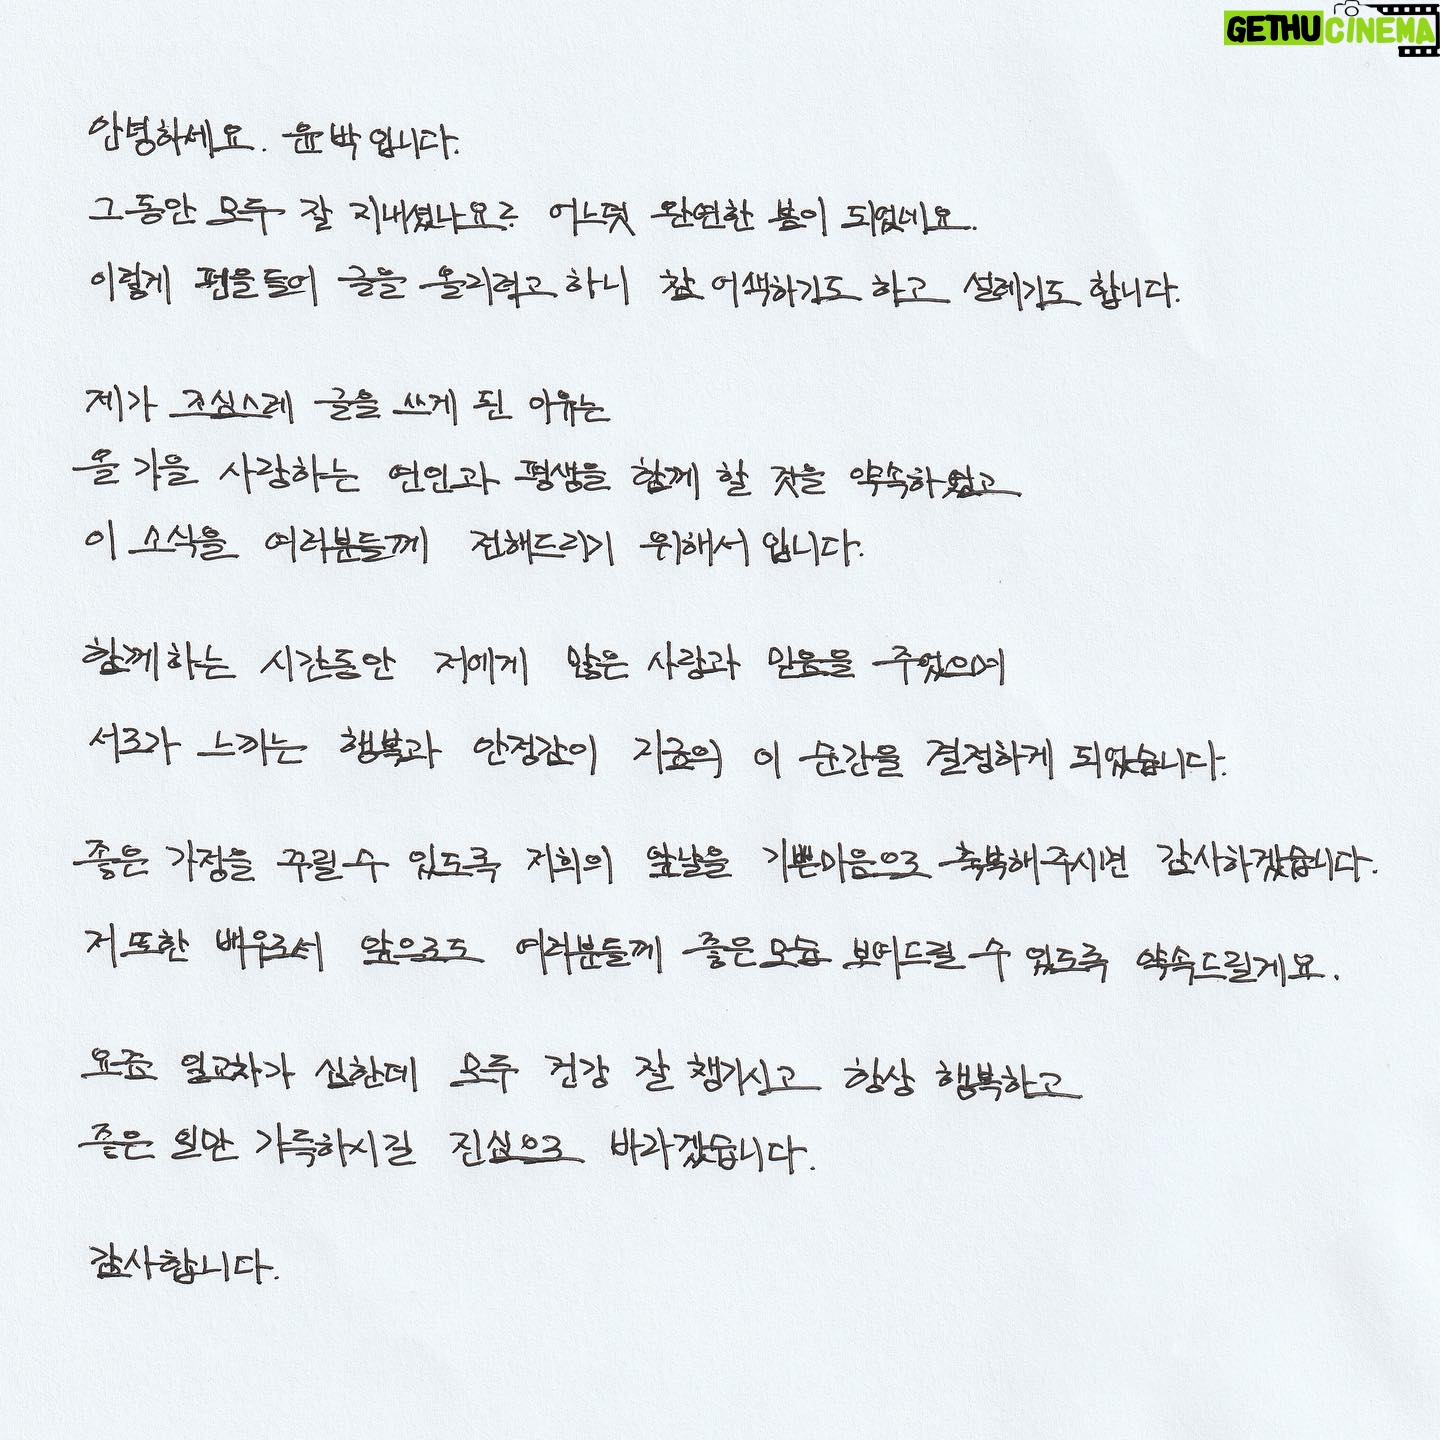 GETHUCINEMA
안녕하세요. 윤박입니다.
그동안 모두 잘 지내셨나요? 어느덧 완연한 봄이 되었네요.
이렇게 펜을 들어 글을 올리려고 하니 참 어색하기도 하고 설레기도 합니다.
제가 조심스레 글을 쓰게 된 이유는
올 가을 사랑하는 연인과 평생을 함께 할 것을 약속하였고
이 소식을 여러분들께 전해드리기 위해서입니다.
함께하는 시간동안 저에게 많은 사랑과 믿음을 주었으며
서로가 느끼는 행복과 안정감이 지금의 이 순간을 결정하게 되었습니다.
좋은 가정을 꾸릴 수 있도록 저희의 앞날을 기쁜마음으로 축복해주시면 감사하겠습니다.
저 또한 배우로서 앞으로도 여러분들께 좋은모습 보여드릴 수 있도록 약속드릴게요.
요즘 일교차가 심한데 모두 건강 잘 챙기시고 항상 행복하고
좋은 일만 가득하시길 진심으로 바라겠습니다.
감사합니다.